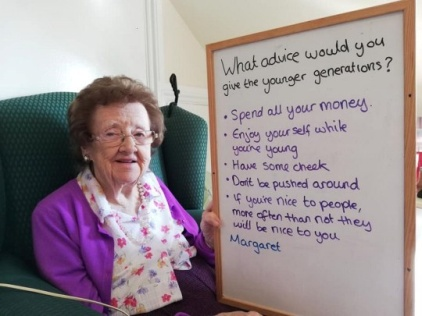 What advice would you
give the younger generations?
• Spend all your money.
• Enjoy your self while
you're young
• Have some cheek
• Don't be pushed around
• If you're nice to people,
more often than not they
will be nice to you
Margaret